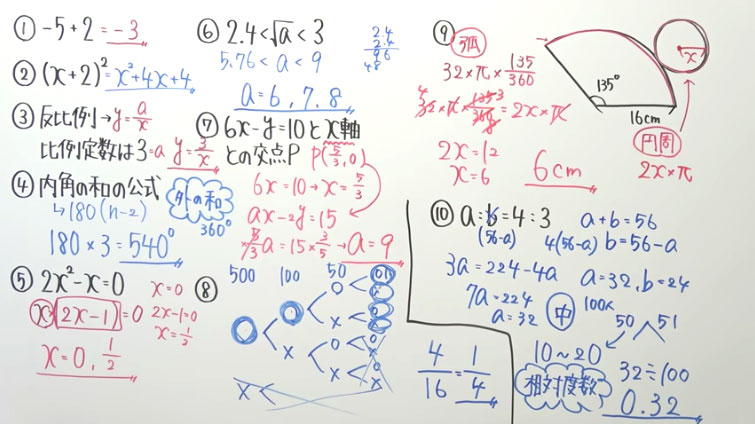 ① -5+2=-3
② (x+2)²=x²+4x+4
③ 反比例→y=a/x
比例定数は3=a y=3/x
④ 内角の和の公式
↳180(n-2)
外の和
360°
180×3=540°
⑤ 2x²-x=0
x(2x-1)=0
x=0
2x-1=0
x=1/2
x=0, 1/2
⑥ 2.4<√a<3
5.76<a<9
a=6,7,8
2.4
2.4
96
48
⑦ 6x-y=10とx軸
との交点P P(5/3,0)
6x=10→x=5/3
ax-2y=15
×3/5 5/3 a=15×3/5→a=9
⑧ 500 100 50 10
○ ○ ○ ○
×
× ○
×
× <
4/16=1/4
⑨ 弧
32×π×135/360
32×π×135/360=2x×π
2x=12
x=6
6cm
135°
16cm
x
円周
2x×π
⑩ a:b=4:3
(56-a) 4(56-a)
a+b=56
b=56-a
3a=224-4a
7a=224
a=32
a=32, b=24
中
100人
50 51
10~20
相対度数
32÷100
0.32